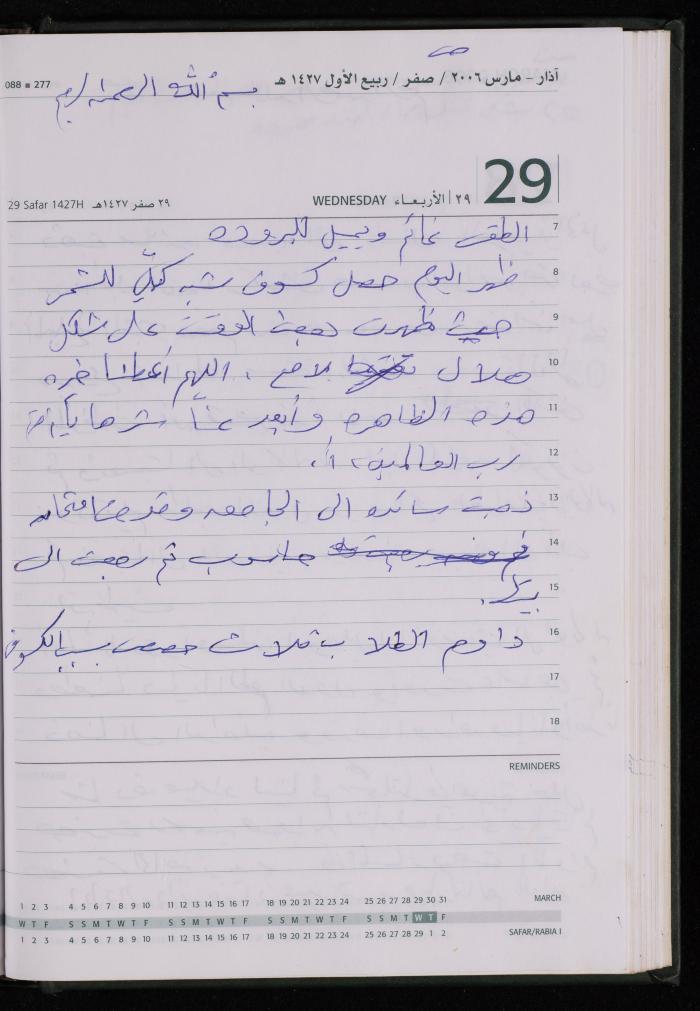 088 ■ 277
آذار - مارس ٢٠٠٦ / صفر / ربيع الأول ١٤٢٧ هـ
بسم الله الرحمن الرحيم
29 Safar 1427H ٢٩ صفر ١٤٢٧هـ
WEDNESDAY ٢٩ | الأربعاء
29
7 الطقس غائم ويميل للبروده
8 ظهر اليوم حصل كسوف شبه كلي للشمس
9 حيث ظهرت بعض الوقت على شكل
10 هلال لامع ، اللهم أعطنا خيره
11 هذه الظاهره وأبعد عنا شرها يا
12 رب العالمين ،
13 ذهبت سائده الى الجامعه وقدمت امتحان
14 حاسوب ثم رجعت الى
15
16 داوم الطلاب ثلاث حصص بسبب الكسوف
17
18
REMINDERS
1 2 3 4 5 6 7 8 9 10 11 12 13 14 15 16 17 18 19 20 21 22 23 24 25 26 27 28 29 30 31 MARCH
W T F S S M T W T F S S M T W T F S S M T W T F S S M T W T F
1 2 3 4 5 6 7 8 9 10 11 12 13 14 15 16 17 18 19 20 21 22 23 24 25 26 27 28 29 1 2 SAFAR/RABIA I